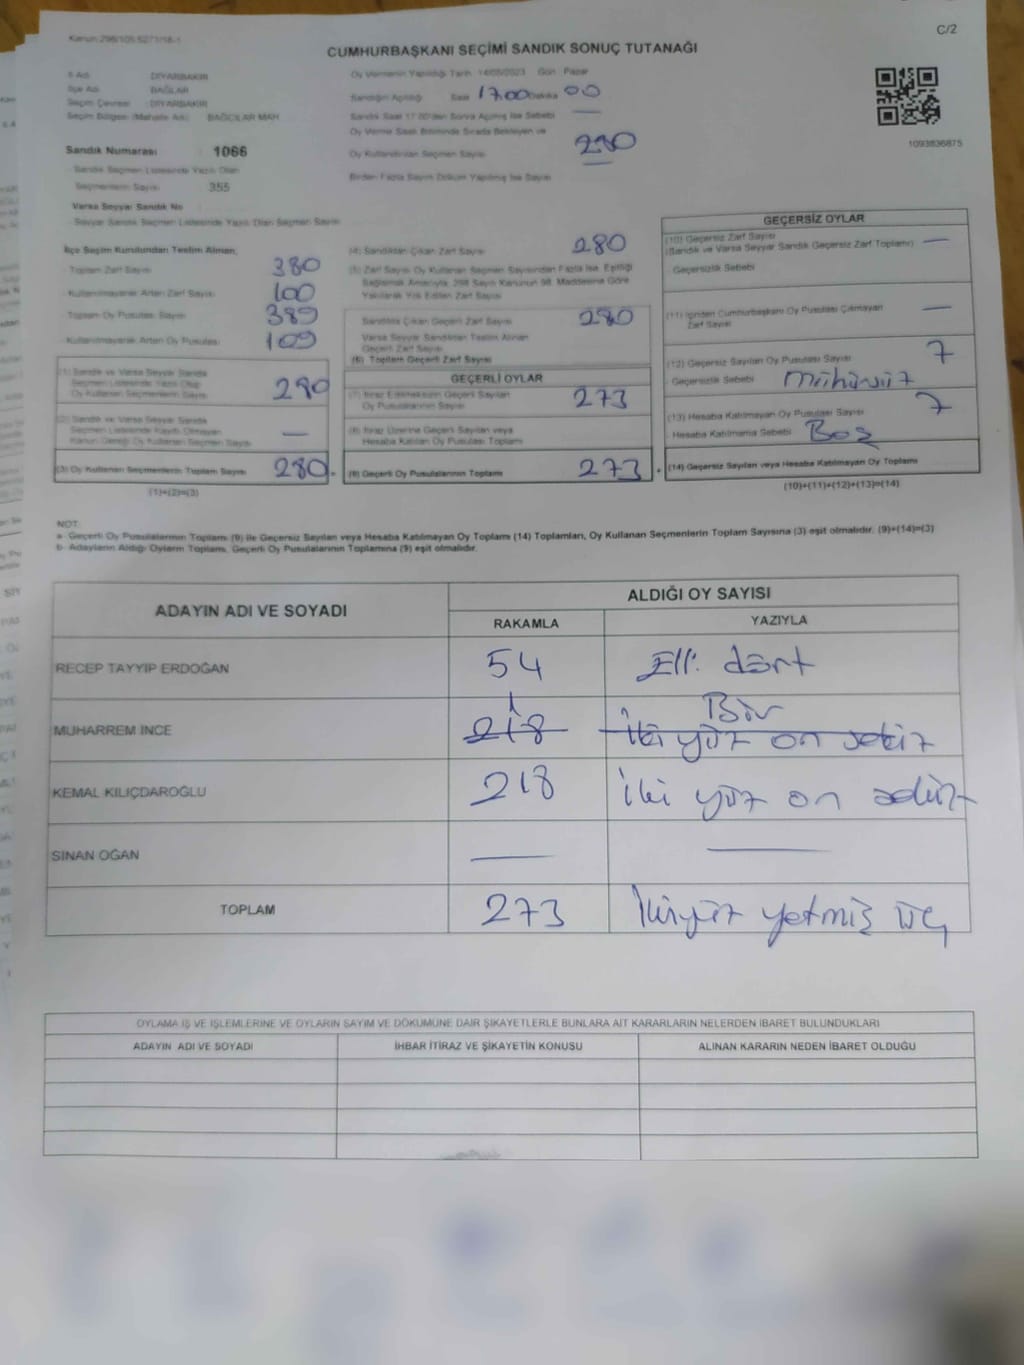 Kanun:298/105.5271/18-1
C/2
CUMHURBAŞKANI SEÇİMİ SANDIK SONUÇ TUTANAĞI
İl Adı : DİYARBAKIR
İlçe Adı : BAĞLAR
Seçim Çevresi : DİYARBAKIR
Seçim Bölgesi (Mahalle Adı) : BAĞCILAR MAH
Oy Vermenin Yapıldığı Tarih 14/05/2023 Gün Pazar
Sandığın Açıldığı Saat 17.00 Dakika 00
Sandık Saat 17.00'den Sonra Açılmış İse Sebebi —
Oy Verme Saati Bitiminde Sırada Bekleyen ve
Oy Kullandırılan Seçmen Sayısı 280
Birden Fazla Sayım Döküm Yapılmış İse Sayısı —
1093836875
Sandık Numarası 1066
- Sandık Seçmen Listesinde Yazılı Olan
Seçmenlerin Sayısı 355
Varsa Seyyar Sandık No
- Seyyar Sandık Seçmen Listesinde Yazılı Olan Seçmen Sayısı
İlçe Seçim Kurulundan Teslim Alınan;
- Toplam Zarf Sayısı 380
- Kullanılmayarak Artan Zarf Sayısı 100
- Toplam Oy Pusulası Sayısı 389
- Kullanılmayarak Artan Oy Pusulası 109
(1) Sandık ve Varsa Seyyar Sandık
Seçmen Listesinde Yazılı Olup
Oy Kullanan Seçmenlerin Sayısı 280
(2) Sandık ve Varsa Seyyar Sandık
Seçmen Listesinde Kayıtlı Olmayan
Kanun Gereği Oy Kullanan Seçmen Sayısı —
(3) Oy Kullanan Seçmenlerin Toplam Sayısı 280
(1)+(2)=(3)
(4) Sandıktan Çıkan Zarf Sayısı 280
(5) Zarf Sayısı Oy Kullanan Seçmen Sayısından Fazla İse, Eşitliği
Sağlamak Amacıyla, 298 Sayılı Kanunun 98. Maddesine Göre
Yakılarak Yok Edilen Zarf Sayısı
Sandıkta Çıkan Geçerli Zarf Sayısı 280
Varsa Seyyar Sandıktan Teslim Alınan
Geçerli Zarf Sayısı
(6) Toplam Geçerli Zarf Sayısı
GEÇERLİ OYLAR
(7) İtiraz Edilmeksizin Geçerli Sayılan
Oy Pusulalarının Sayısı 273
(8) İtiraz Üzerine Geçerli Sayılan veya
Hesaba Katılan Oy Pusulası Toplamı
(9) Geçerli Oy Pusulalarının Toplamı 273
GEÇERSİZ OYLAR
(10) Geçersiz Zarf Sayısı
(Sandık ve Varsa Seyyar Sandık Geçersiz Zarf Toplamı) —
- Geçersizlik Sebebi
(11) İçinden Cumhurbaşkanı Oy Pusulası Çıkmayan
Zarf Sayısı —
(12) Geçersiz Sayılan Oy Pusulası Sayısı 7
- Geçersizlik Sebebi
(13) Hesaba Katılmayan Oy Pusulası Sayısı 7
- Hesaba Katılmama Sebebi Boş
(14) Geçersiz Sayılan veya Hesaba Katılmayan Oy Toplamı
(10)+(11)+(12)+(13)=(14)
NOT:
a- Geçerli Oy Pusulalarının Toplamı (9) ile Geçersiz Sayılan veya Hesaba Katılmayan Oy Toplamı (14) Toplamları, Oy Kullanan Seçmenlerin Toplam Sayısına (3) eşit olmalıdır. (9)+(14)=(3)
b- Adayların Aldığı Oyların Toplamı, Geçerli Oy Pusulalarının Toplamına (9) eşit olmalıdır.
ADAYIN ADI VE SOYADI
ALDIĞI OY SAYISI
RAKAMLA YAZIYLA
RECEP TAYYIP ERDOĞAN 54 Elli dört
1 Bir
MUHARREM İNCE 218 İki yüz on sekiz
KEMAL KILIÇDAROĞLU 218 İki yüz on sekiz
SİNAN OĞAN — —
TOPLAM 273 İkiyüz yetmiş üç
OYLAMA İŞ VE İŞLEMLERİNE VE OYLARIN SAYIM VE DÖKÜMÜNE DAİR ŞİKAYETLERLE BUNLARA AİT KARARLARIN NELERDEN İBARET BULUNDUKLARI
ADAYIN ADI VE SOYADI İHBAR İTİRAZ VE ŞİKAYETİN KONUSU ALINAN KARARIN NEDEN İBARET OLDUĞU